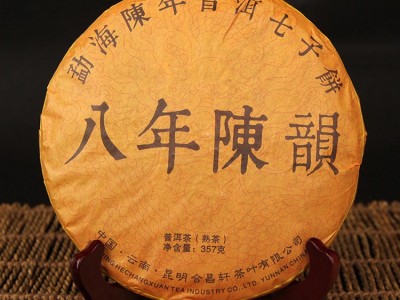 勐海陳年普洱七子餅
八年陳韻
普洱茶(熟茶)
净含量:357克
中国·云南·昆明合昌轩茶叶有限公司
HECHANGXUAN TEA INDUSTRY CO. LTD YUNNAN CHINA